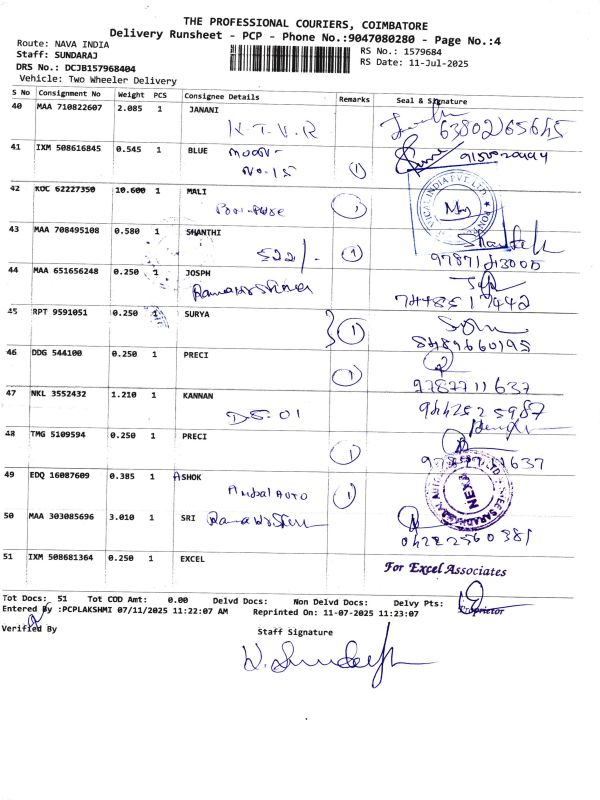 THE PROFESSIONAL COURIERS, COIMBATORE
Delivery Runsheet - PCP - Phone No.:9047080280 - Page No.:4
Route: NAVA INDIA
Staff: SUNDARAJ
DRS No.: DCJB157968404
Vehicle: Two Wheeler Delivery
RS No.: 1579684
RS Date: 11-Jul-2025
S No Consignment No Weight PCS Consignee Details Remarks Seal & Signature
40 MAA 710822607 2.085 1 JANANI
K.T.V.R 6380265645
41 IXM 508616845 0.545 1 BLUE MOON-
No.15 1
42 KOC 62227350 10.600 1 MALI
1
43 MAA 708495108 0.580 1 SHANTHI
522/- 1
44 MAA 651656248 0.250 1 JOSPH
7448517442
45 RPT 9591051 0.250 1 SURYA
1 8489660195
46 DDG 544100 0.250 1 PRECI
1 9787711637
47 NKL 3552432 1.210 1 KANNAN
DS-01 9442525987
48 TMG 5109594 0.250 1 PRECI
1
49 EDQ 16087609 0.385 1 ASHOK
Ambal AUTO 1
NEXA
50 MAA 303085696 3.010 1 SRI
04222560381
51 IXM 508681364 0.250 1 EXCEL
For Excel Associates
Proprietor
Tot Docs: 51 Tot COD Amt: 0.00 Delvd Docs: Non Delvd Docs: Delvy Pts:
Entered By :PCPLAKSHMI 07/11/2025 11:22:07 AM Reprinted On: 11-07-2025 11:23:07
Verified By
Staff Signature